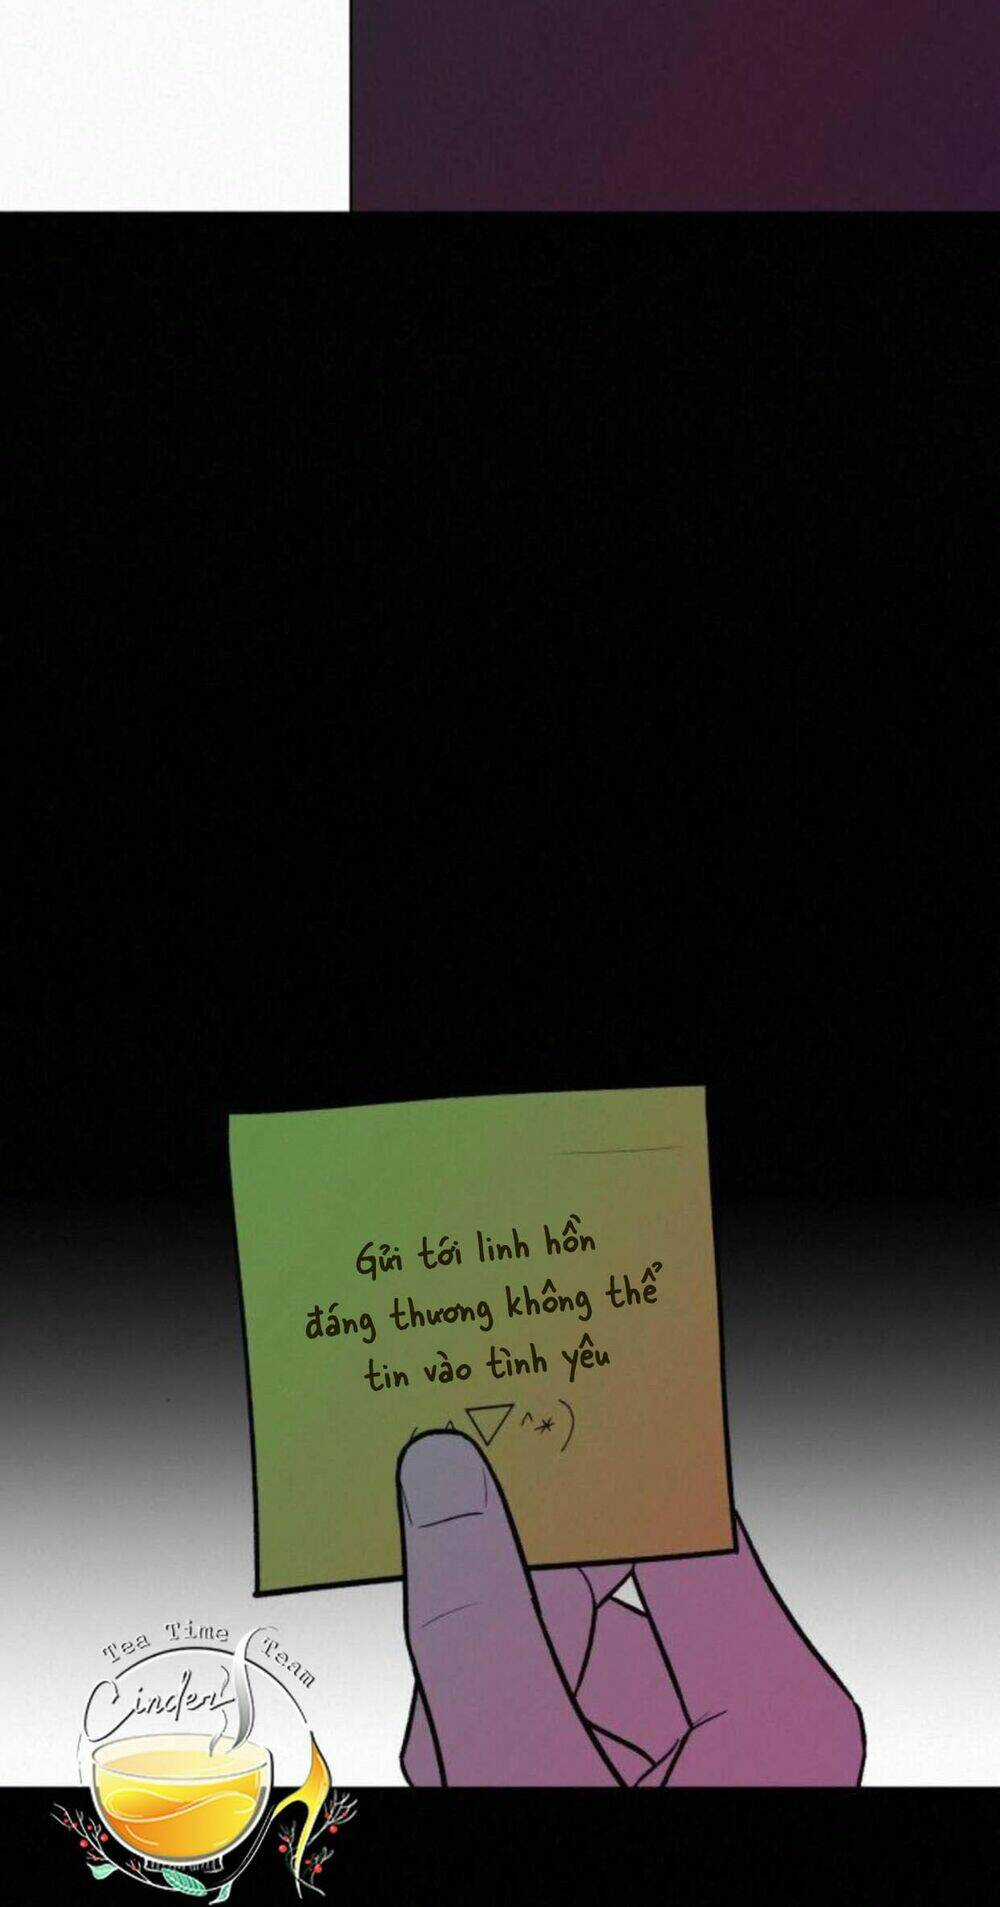 Gửi tới linh hồn
đáng thương không thể
tin vào tình yêu
^▽^*)
Tea Time Team
Cinder